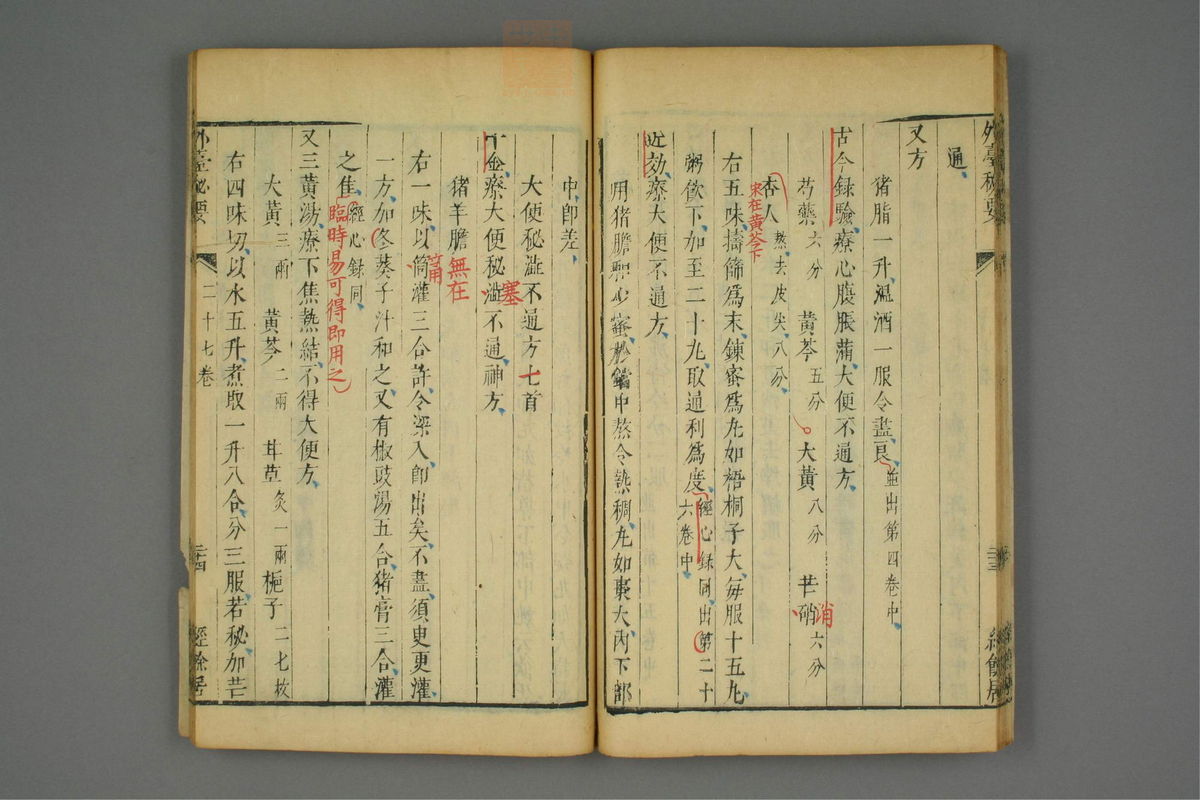 外臺秘要
通
又方
猪脂一升溫酒一服令盡良並出第四卷中
古今録驗療心腹脹滿大便不通方
芍藥六分 黃芩五分 大黃八分 芒硝六分
消
杏人熬去皮尖八分
宋在黃芩下
右五味擣篩爲末鍊蜜爲丸如梧桐子大每服十五丸
粥飲下加至二十丸取通利爲度經心録同出第二十六卷中
近効療大便不通方
用猪膽和少蜜於鐺中熬令熱稠丸如棗大內下部
中卽差
大便秘澁不通方七首
塞
千金療大便秘澁不通神方
猪羊膽
無在
右一味以筒灌三合許令深入卽出矣不盡須更更灌
一方加冬葵子汁和之又有椒豉湯五合猪膏三合灌
之佳經心録同
臨時易可得即用之
又三黃湯療下焦熱結不得大便方
大黃三兩 黃芩二兩 甘草炙一兩 梔子二七枚
右四味切以水五升煮取一升八合分三服若秘加芒
外臺秘要 二十七卷 二十四 經餘居